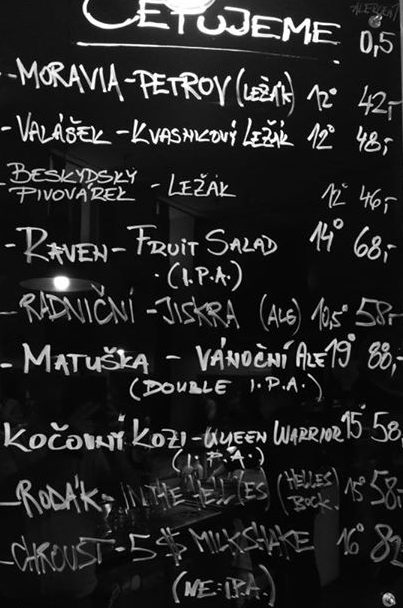 CEPUJEME
ALERGENY
0,5
-MORAVIA-PETROV (LEŽÁK) 12° 42,-
-VALÁŠEK -KVASNICOVÝ LEŽÁK 12° 48,-
-BESKYDSKÝ PIVOVÁREK - LEŽÁK 12° 46,-
-RAVEN-FRUIT SALAD 14° 68,-
·(I.P.A.)
-RADNIČNÍ-JISKRA (ALE) 10,5° 58,-
-MATUŠKA - VÁNOČNÍ ALE 19° 88,-
(DOUBLE I.P.A.)
KOČOVNÍ KOZI-QUEEN WARRIOR 15° 58,
(I.P.A.)
-RODÁK- IN THE HELL(ES) (HELLES BOCK) 58,-
-CHROUST-5$ MILKSHAKE 16° 82
(NE:I.P.A.)